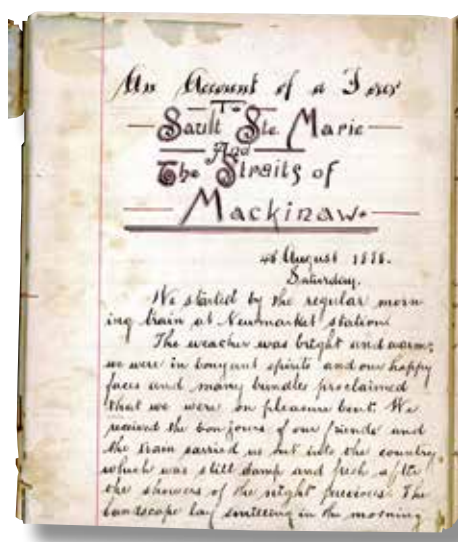 An Account of a Tour
To
Sault Ste. Marie
And
The Straits of
Mackinaw.
4th August 1888.
Saturday.
We started by the regular morn
ing train at Newmarket station
The weather was bright and warm;
we were in bouyant spirits and our happy
faces and many bundles proclaimed
that we were on pleasure bent. We
received the bon jours of our friends and
the train carried us out into the country
which was still damp and fresh after
the showers of the night previous. The
landscape lay smiling in the morning